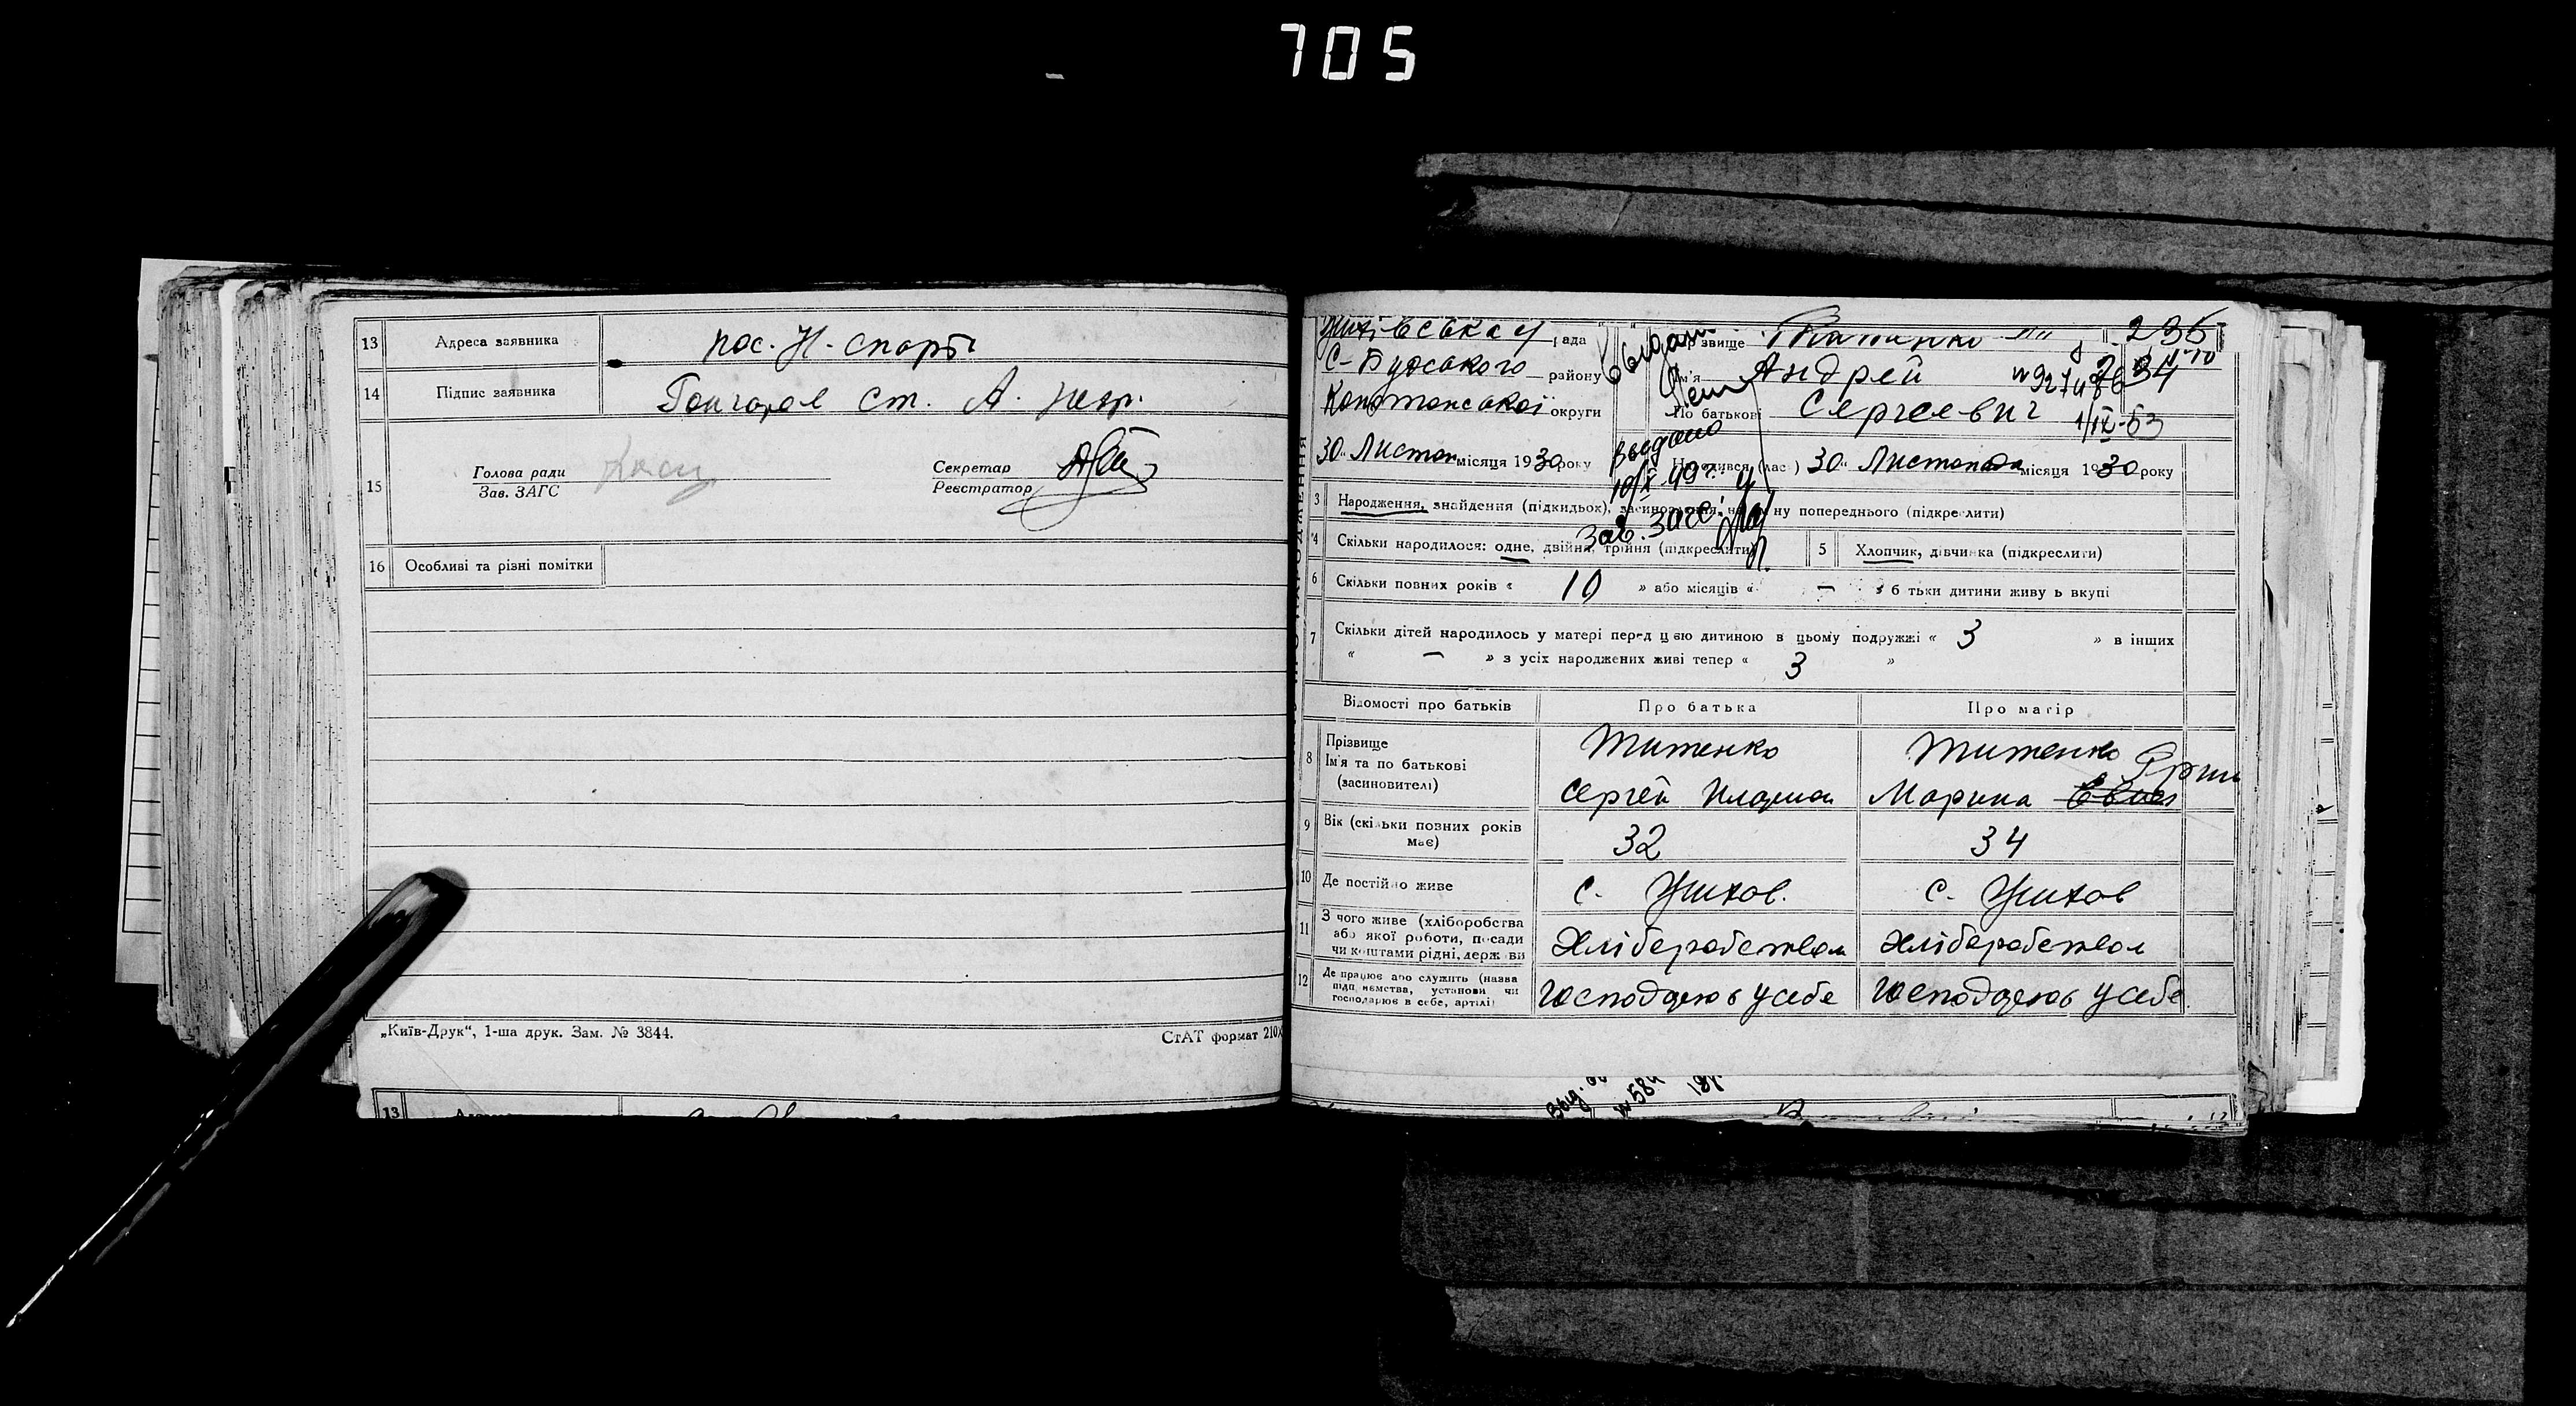 705
13 Адреса заявника
14 Підпис заявника ст. А.
15 Голова ради
Зав. ЗАГС
Секретар
Реєстратор
16 Особливі та різні помітки
„Київ-Друк“, 1-ша друк. Зам. № 3844.
СтАТ формат 210
13
рада
С-Будського району
округи
30 " Листоп місяця 1930 року
Прізвище 235
Ім'я Андрей
По батькові Сергеевич
1/IX-53
Выдано
10/X 49 г.
Зав. ЗАГС
Народився (лась) 30 " Листопада місяця 1930 року
3 Народження, знайдення (підкидьох), засиновлення, на зміну попереднього (підкреслити)
4 Скільки народилося: одне, двійня, трійня (підкреслити)
5 Хлопчик, дівчинка (підкреслити)
6 Скільки повних років « 10 » або місяців « — » батьки дитини живуть вкупі
7 Скільки дітей народилось у матері перед цією дитиною в цьому подружжі « 3 » в інших
« — » з усіх народжених живі тепер « 3 »
Відомості про батьків
Про батька
Про матір
8 Прізвище
Ім'я та по батькові
(засиновителі)
Титенко
Сергей
Титенко
Марина
9 Вік (скільки повних років має)
32
34
10 Де постійно живе
с.
с.
11 З чого живе (хліборобства
або якої роботи, посади
чи коштами рідні, держави
Хліборобством
Хліборобством
12 Де працює або служить (назва
підприємства, установи чи
господарює в себе, артілі)
Господарює у себе
Господарює у себе